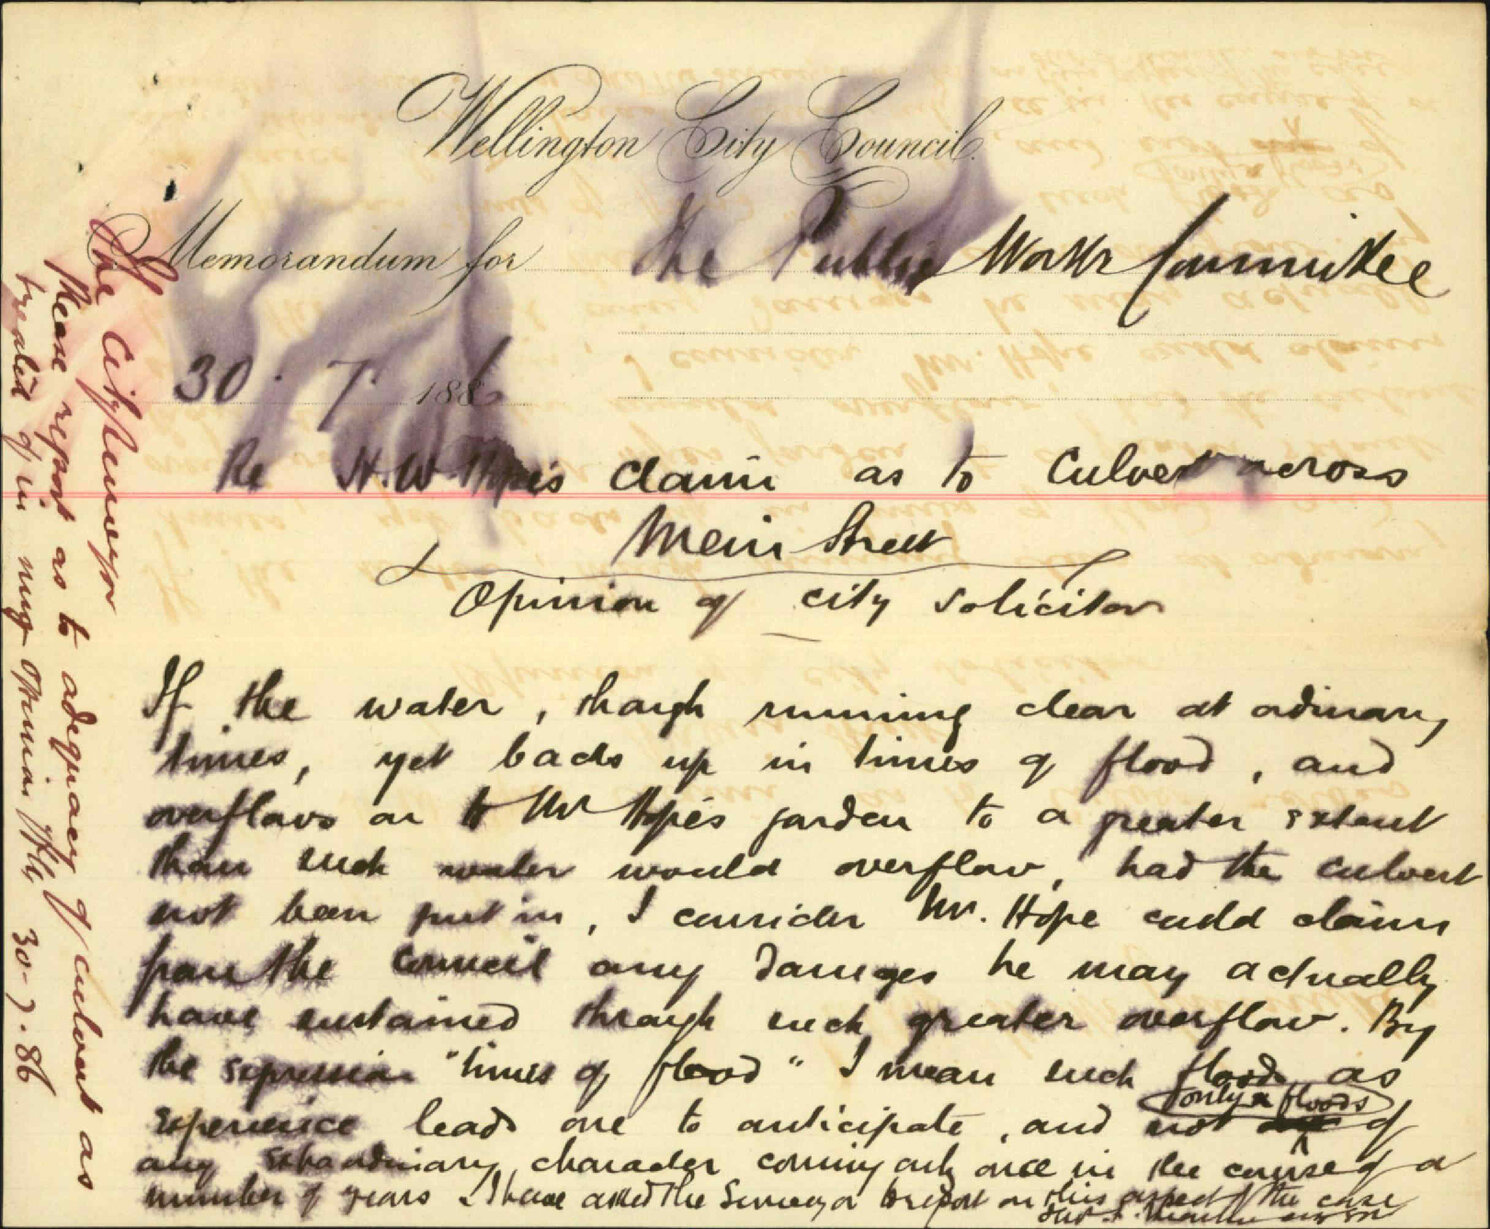 Wellington City Council.
Memorandum for The Public Works Committee
30 . 7. 1886
Re H. W Hope's claim as to Culvert across
Mein Street
Opinion of city solicitor
If the water, though running clear at ordinary
times, yet backs up in times of flood, and
overflows on to Mr Hope's garden to a greater extent
than such water would overflow, had the culvert
not been put in, I consider Mr. Hope could claim
from the Council any damages he may actually
have sustained through such greater overflow. By
the expression "times of flood" I mean such floods as
experience leads one to anticipate, and not floods of
any extraordinary character coming only once in the course of a
number of years I have asked the Surveyor to report on this aspect of the case
The City Surveyor
Please report as to adequacy of culvert as
treated of in my opinion 30-7-86